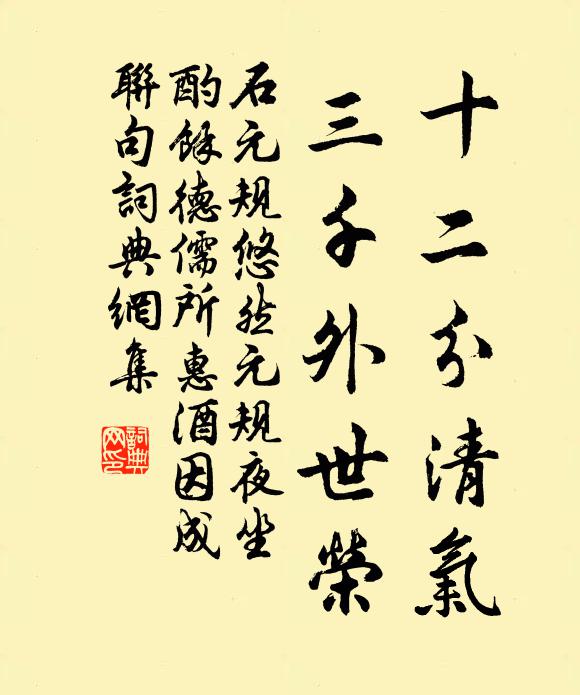 十二分清氣
三千外世榮
石元規悠然元規夜坐
酌餘德儒所惠酒因成
聯句詞典網集
詞典
网印